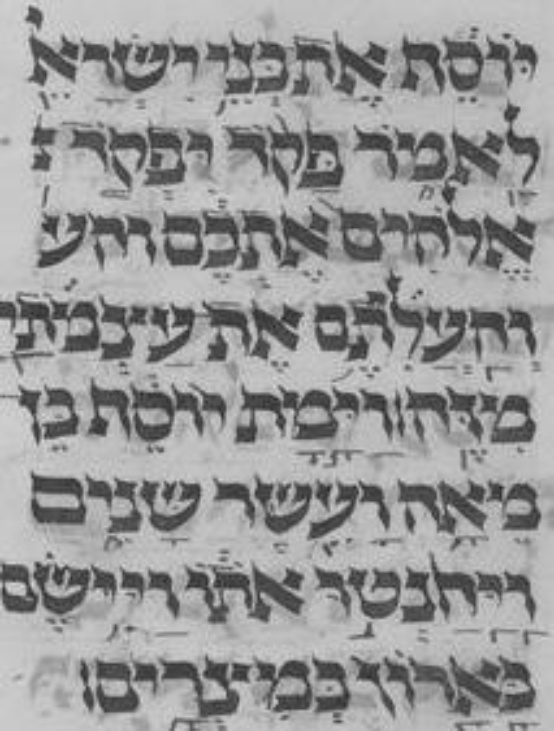 יוסף את בני ישראל
לאמר פקד יפקד
אלהים אתכם והע
והעלתם את עצמתי
מזה׃ וימת יוסף בן
מאה ועשר שנים
ויחנטו אתו ויישם
בארון במצרים׃